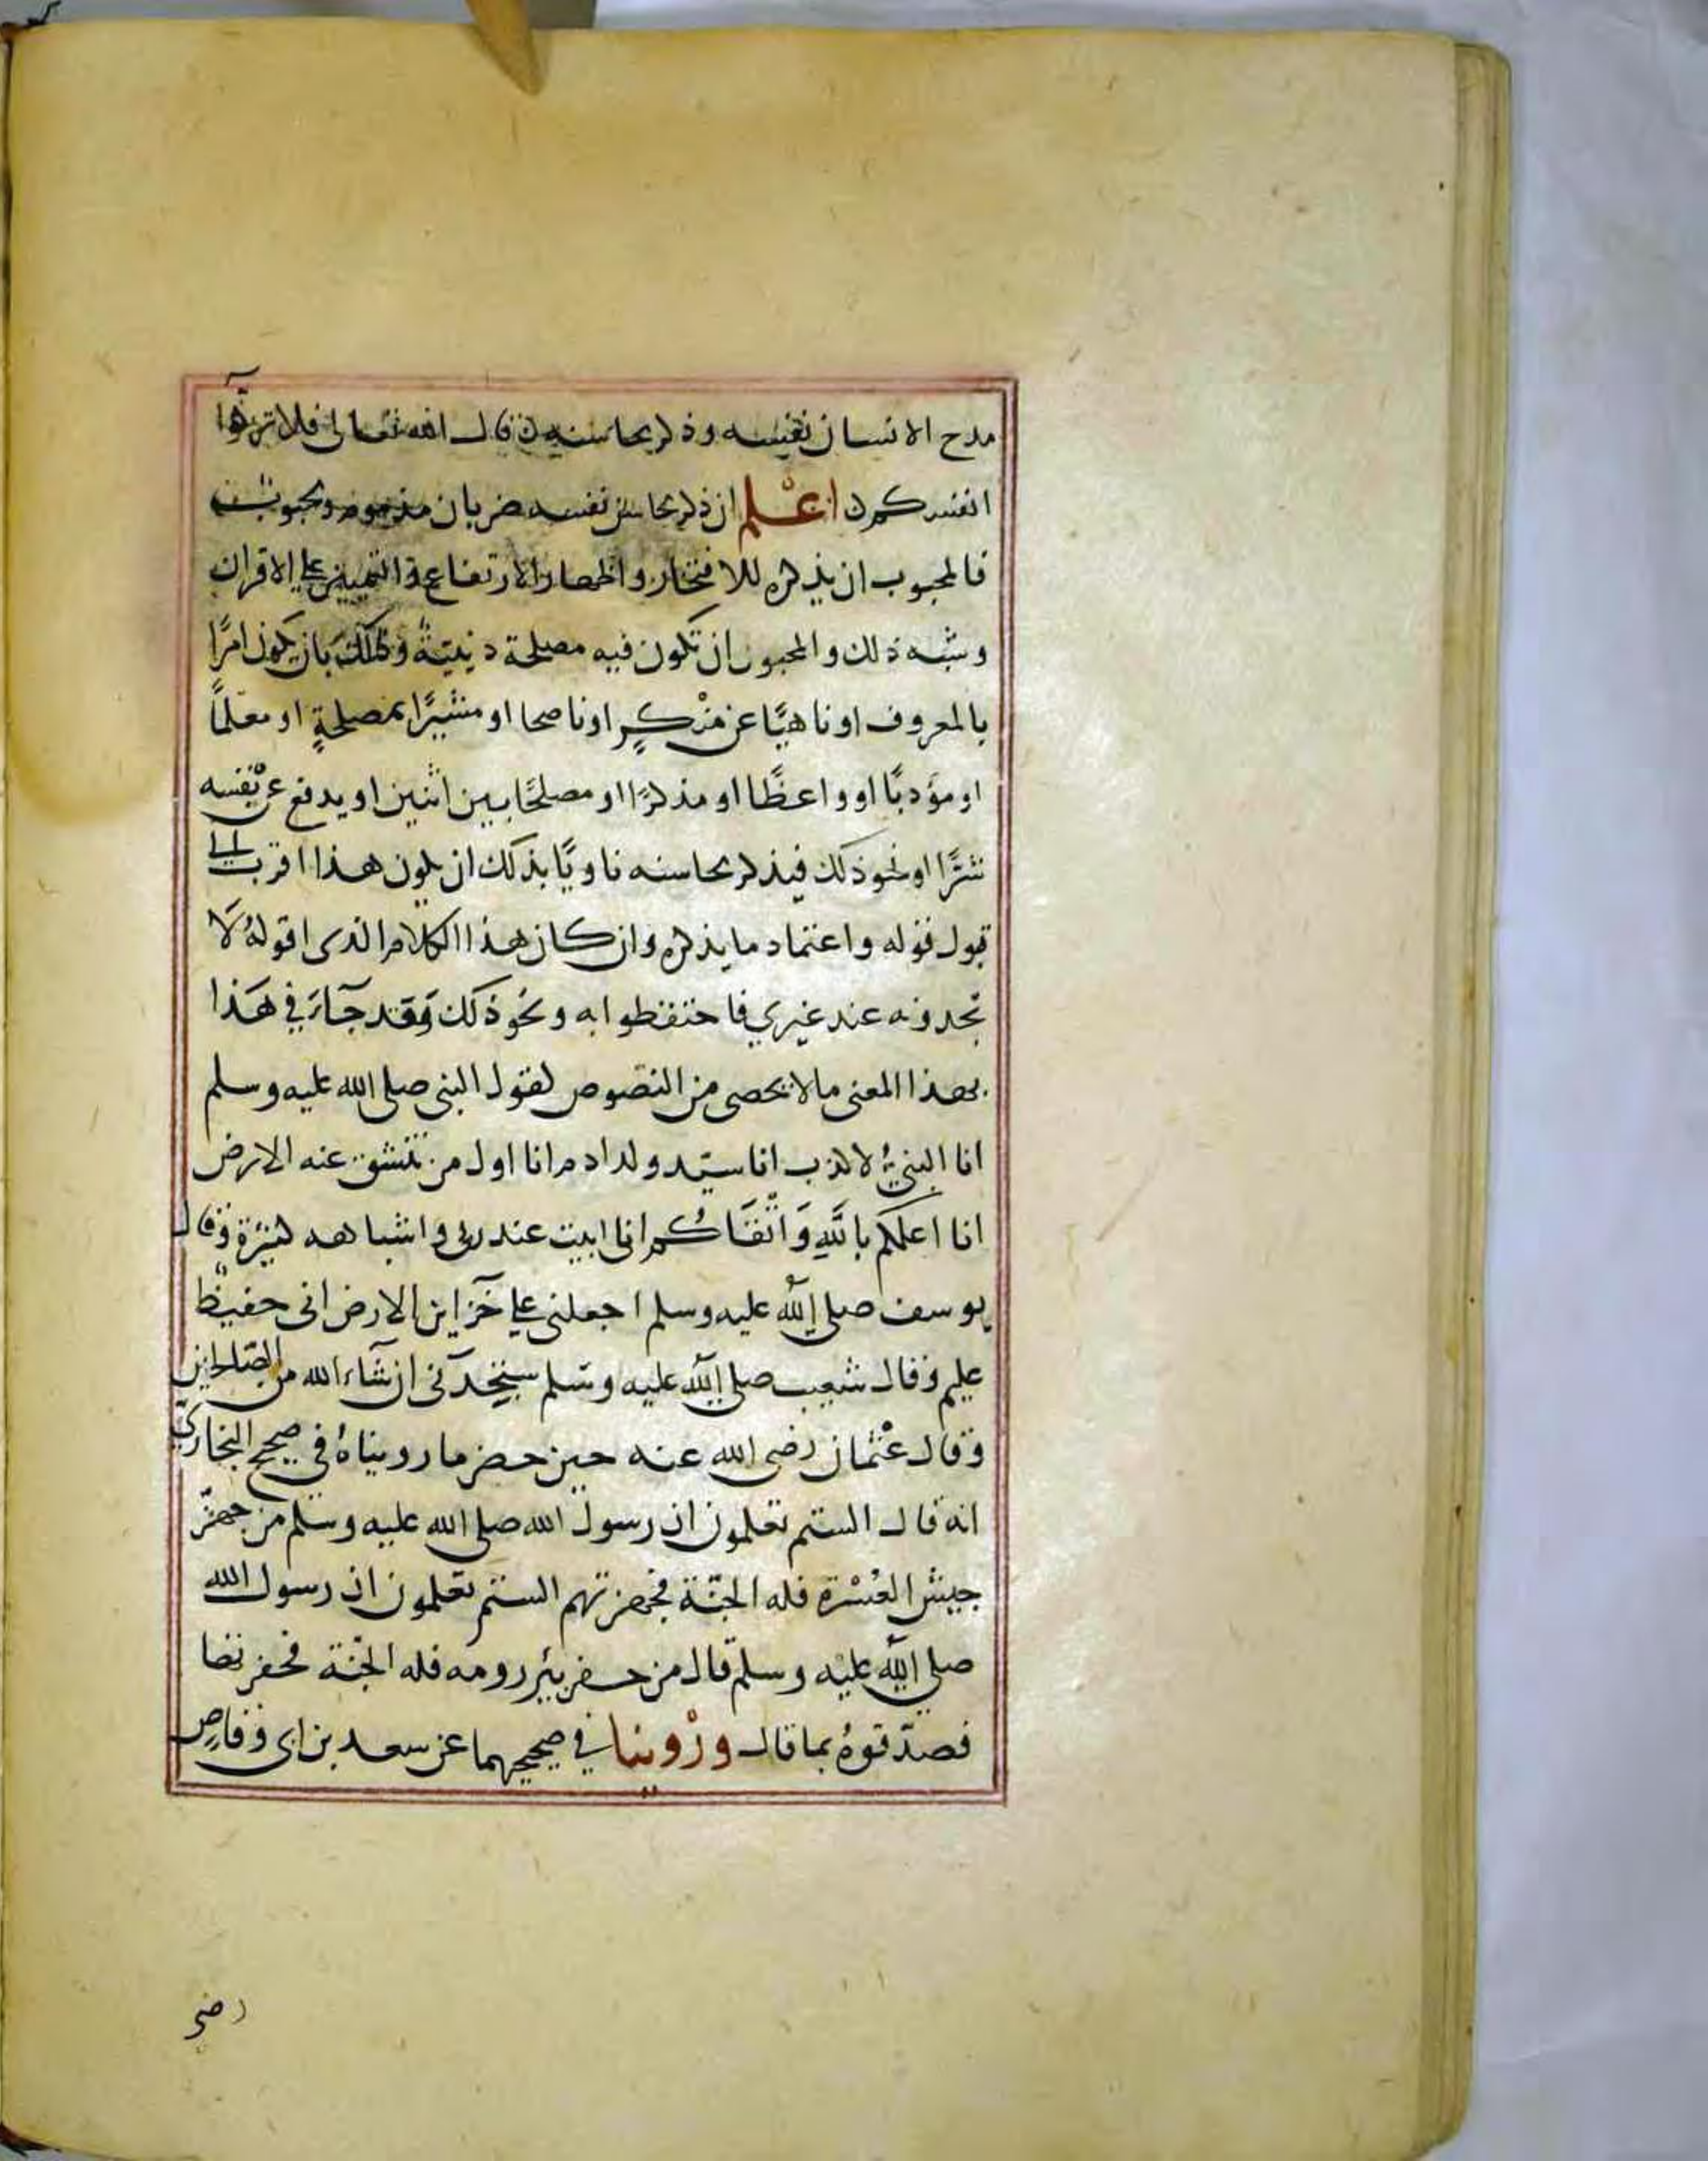 مدح الانسان نفسه وذكر محاسنه قال الله تعالى فلا تزكوا
انفسكم اعْلم ان ذكر محاسن نفسه ضربان مذموم ومحبوب
فالمحبوب ان يذكره للافتخار واظهار الارتفاع والتمييز على الاقران
وشبه ذلك والمحبوب ان تكون فيه مصلحة دينيةٌ وذلك بان يكون امرًا
بالمعروف او ناهيًا عن منْكرٍ او ناصحا او مشيرًا بمصلحةٍ او معلمًا
او مؤدبًا او واعظًا او مذكرًا او مصلحًا بين اثنين او يدفع عن نفسه
شرًّا او نحو ذلك فيذكر محاسنه ناويًا بذلك ان يكون هذا اقرب الى
قبول قوله واعتماد ما يذكره وان كان هذا الكلام الذى اقولهُ لَا
تجدونه عند غيري فاحتفظوا به ونحو ذلك وَقد جآءَ في هَذا
بهذا المعنى ما لا يحصى من النصوص كقول النبى صلى الله عليه وسلم
انا النبيُّ لا كذب انا سيّد ولد ادم انا اول من تنشق عنه الارض
انا اعلمكم باللهِ وَاتْقَاكُم انى ابيت عند ربى واشباهه كثيرة وقال
يوسف صلى الله عليه وسلم اجعلنى على خزاين الارض انى حفيظ
عليم وقال شعيب صلى الله عليه وسلم ستجدنى ان شآء الله من الصّالحين
وقال عثمان رضى الله عنه حين حصر ما رويناهُ في صحيح البخارى
انه قال الستم تعلمون ان رسول الله صلى الله عليه وسلم من جهّز
جيش العُسْرة فله الجنّة فجهزتهم الستم تعلمون ان رسول الله
صلى الله عليه وسلم قال من حفر بئر رومه فله الجنّة فحفرتها
فصدّقوهُ بما قال ورْوينا في صحيحيهما عن سعد بن ابى وقاصٍ
رضى